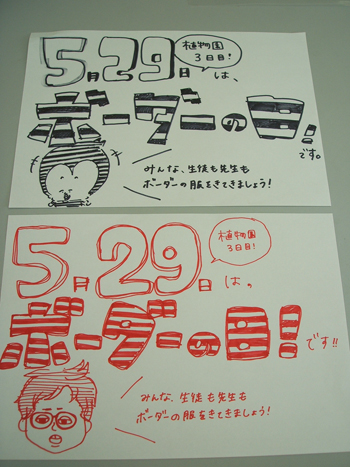 5月29日は、
植物園
3日目!
ボーダーの日!です。
みんな、生徒も先生も
ボーダーの服をきてきましょう!
5月29日は。
植物園
3日目!
ボーダーの日!です!!
みんな、生徒も先生も
ボーダーの服をきてきましょう!